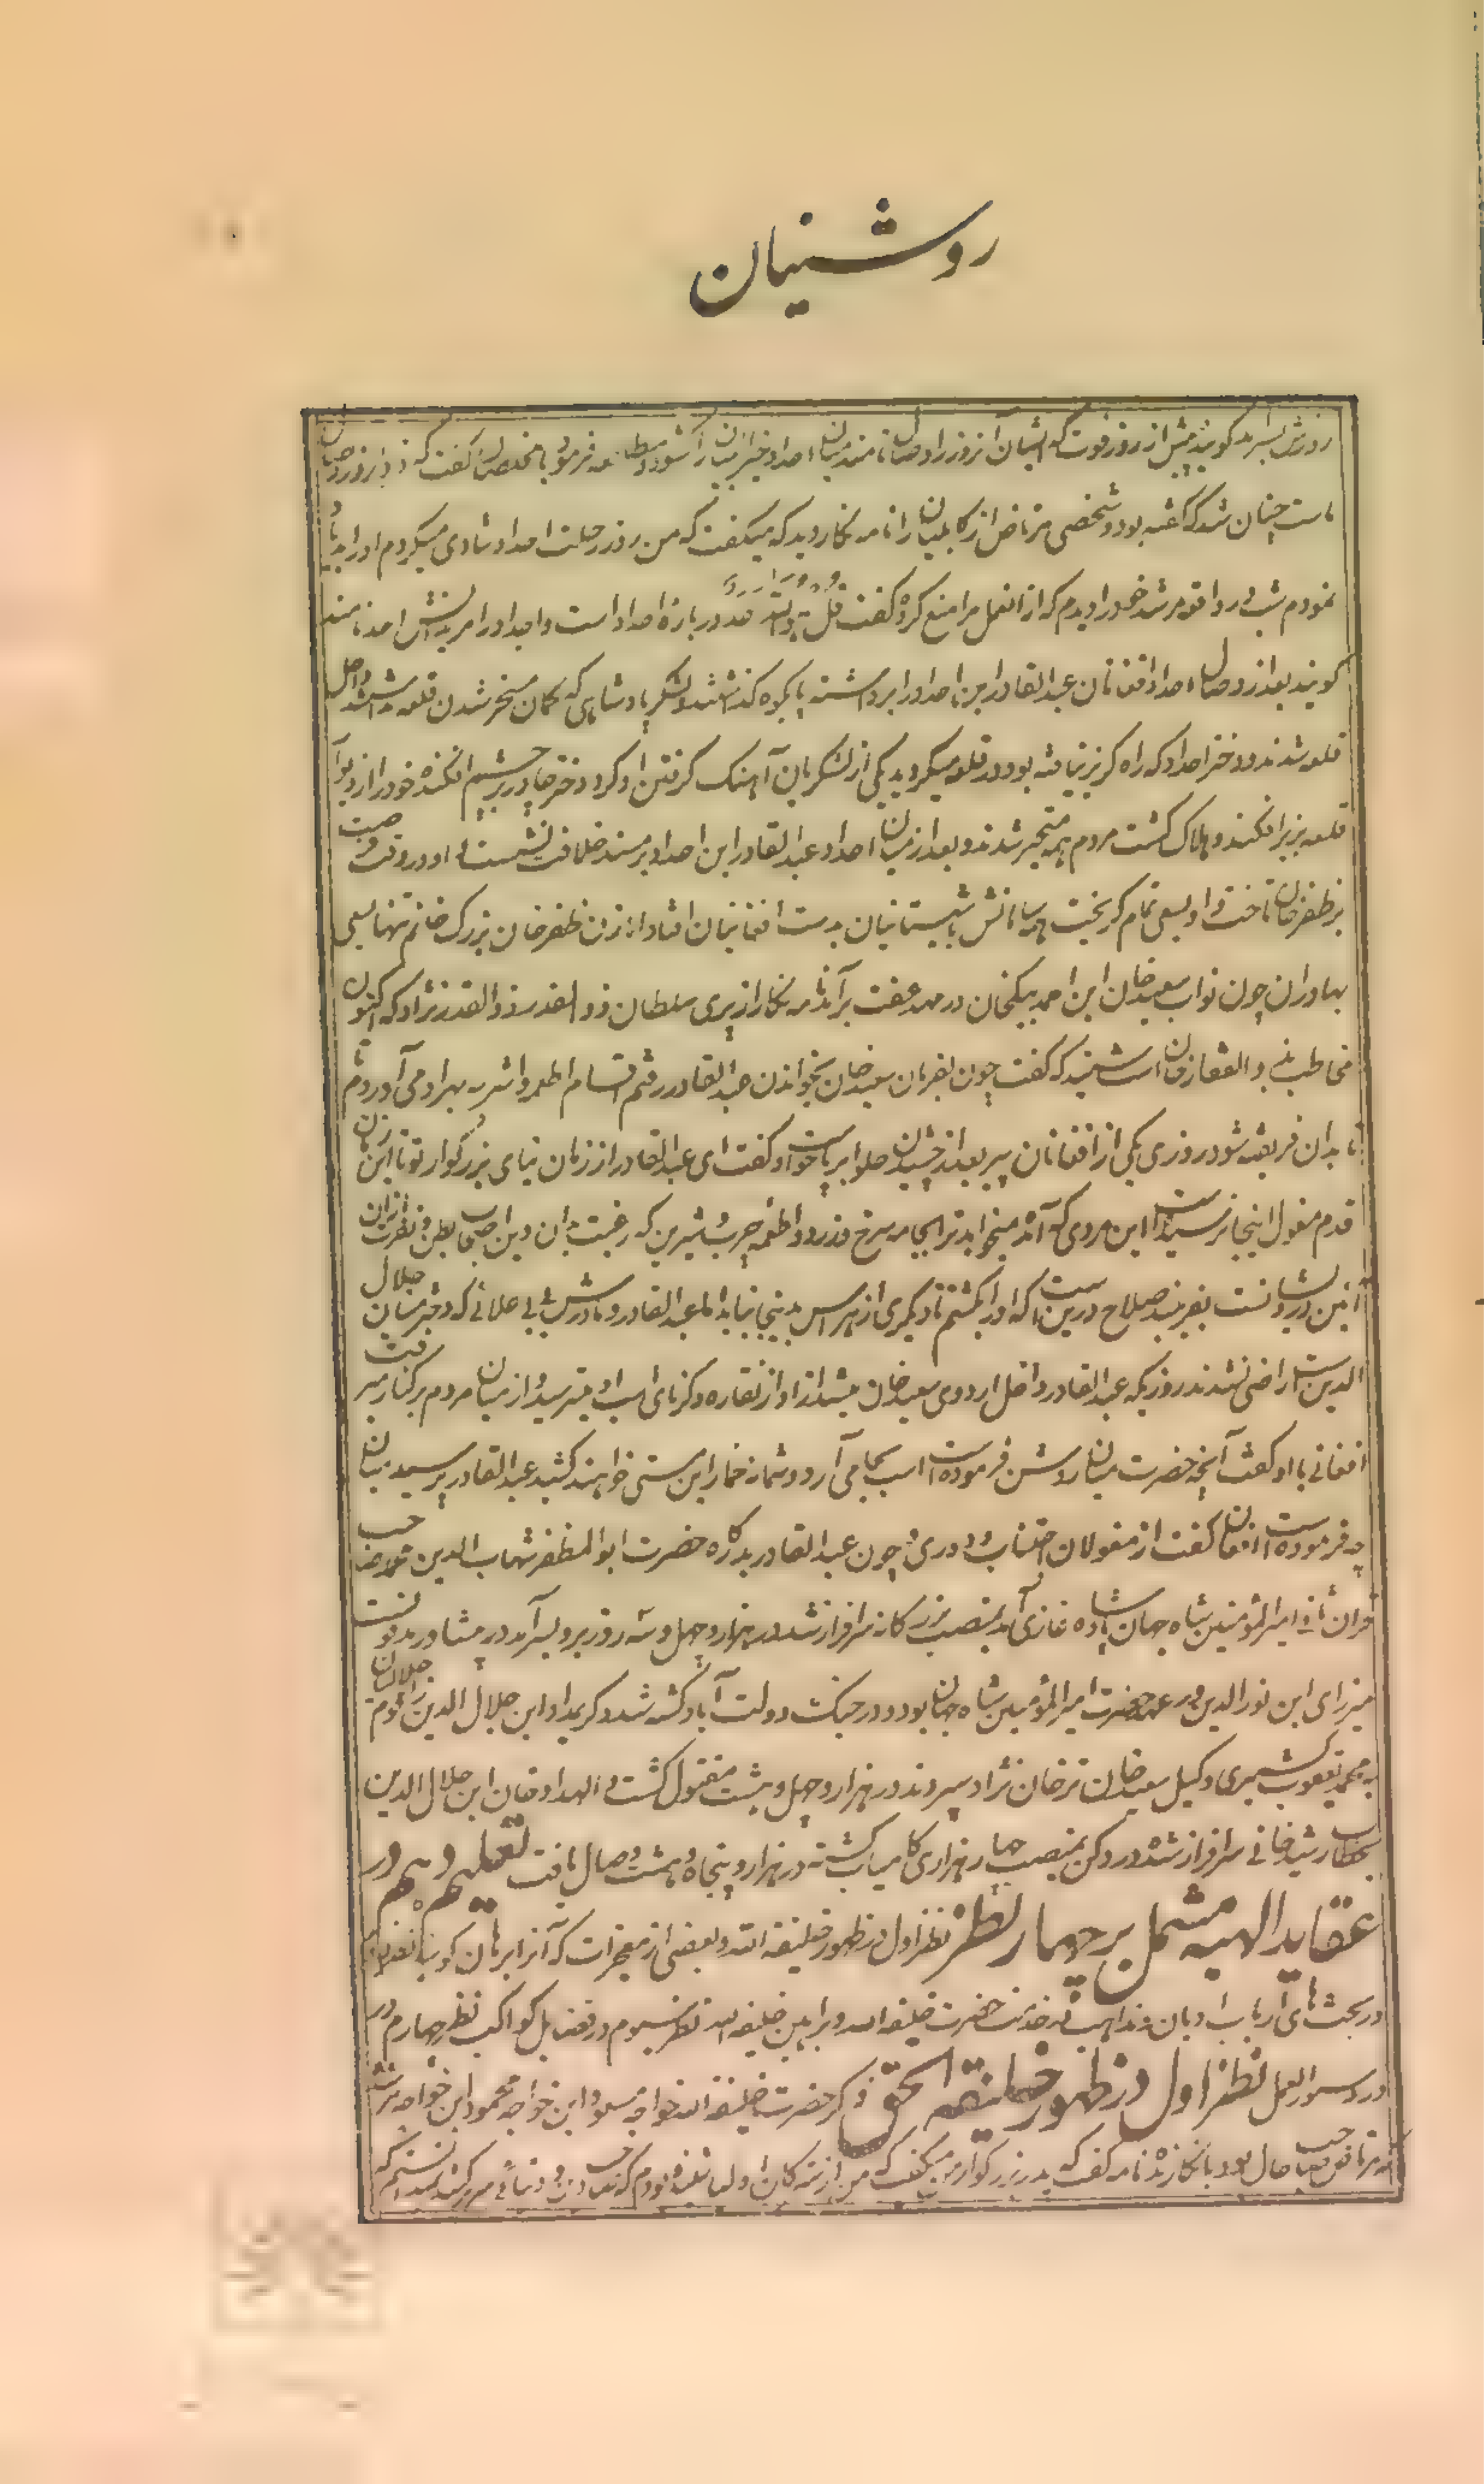 روشنیان
روزش بسر برد گویند پیش از روز فوت که ایشان آنروز را وصال نامند میان احداد خیرالبیان را گشوده مطالعه فرمود با مخلصان گفت که فردا روز وصال
ماست چنان شد که گفته بود و شخصی مرتاض از کابلیان را نامه نگار دید که میگفت که من روز رحلت احداد شادی میکردم او را بد یاد
نمودم شب در واقعه مرشد خود را دیدم که از آن عمل مرا منع کرده گفت قل هو الله احد در باره احداد است و احداد را مریدانش احد نامند
گویند بعد از وصال احداد افغانان عبدالقادر ابن احداد را برداشته بکوه گذاشتند لشکر پادشاهی که گمان مسخر شدن قلعه نداشتند داخل
قلعه شدند دختر احداد که راه گریز نیافته بود در قلعه میگردید یکی از لشکریان آهنگ گرفتن او کرد دختر چادر بر چشم افکنده خود را از دیوار
قلعه بزیر افکند و هلاک گشت مردم همه متحیر شدند و بعد از میان احداد عبدالقادر ابن احداد بر مسند خلافت نشست و او در وقت فرصت
بر ظفرخان تاخت و او بسعی تمام گریخت همه سامانش با شبستانیان بدست افغانان افتاد اما زن ظفرخان بزرگ خانم تنها بسعی
بهادران چون نواب سعیدخان ابن احمد بیگ خان در مهد عفت برآمد نامه نگار از پری سلطان ذوالقدر نژاد که اکنون
مخاطب به ذوالفقارخان است شنید که گفت چون بفرمان سعیدخان بخواندن عبدالقادر رفتم اقسام اطعمه و اشربه بهر او می آوردم تا
بدان فریفته شود روزی یکی از افغانان پیر بعد از چشیدن حلوا برپا خواست و گفت ای عبدالقادر از زمان نیای بزرگوار تو تا این زمان
قدم مغول اینجا نرسیده است این مردی که آمده میخواهد ترا بجامه سرخ و زرد و اطعمه چرب و شیرین که رغبت بدان دین اصحاب بطن و نفرت از آن
آئین درویشانست بفریبد صلاح درین است که او را بکشیم تا دیگری از هراس بدینجا نیاید اما عبدالقادر و مادرش بی بی علائی که دختر میان جلال
الدین است راضی نشدند روزیکه عبدالقادر داخل اردوی سعیدخان میشد از آواز نقاره و کرنای اسب او میترسید و از میان مردم بر کنار میرفت
افغانی با او گفت آنچه حضرت میان روشن فرموده است اسب بجا می آرد و شما خمار این مستی خواهند کشید عبدالقادر پرسید میان
چه فرموده است افغان گفت از مغولان اجتناب و دوری چون عبدالقادر بدرگاه حضرت ابوالمظفر شهاب الدین محمد صاحب
قران ثانی امیرالمؤمنین شاه جهان پادشاه غازی آمد بمنصب بزرگانه سرافراز شد در هزار و چهل و سه روزش بسر آمد در پشاور مدفونست
میرزای ابن نورالدین در عهد حضرت امیرالمؤمنین شاه جهان بود و در جنگ دولت آباد کشته شد و کریمداد ابن جلال الدین را قوم جلالیان
به محمد یعقوب کشمیری وکیل سعیدخان ترخان نژاد سپردند در هزار و چهل و هشت مقتول گشت و الهداد خان ابن جلال الدین
بخطاب رشیدخانی سرافراز شده در دکن بمنصب چهار هزاری کامیاب گشته در هزار و پنجاه و هشت وصال یافت تعلیم دهم در
عقاید الهیه مشتمل بر چهار نظر نظر اول در ظهور خلیفة الله و بعضی از معجزات که آنرا برهان گویند نظر دوم
در بحث های ارباب ادیان و مذاهب در خدمت حضرت خلیفة الله و براهین خلیفة الله نظر سیوم در فضایل کواکب نظر چهارم در
دستور العمل نظر اول در ظهور خلیفة الحق ذکر حضرت خلیفة الله خواجه مسعود ابن خواجه محمود ابن خواجه مرشد
که مرتاض صاحب حال بود با نگارنده نامه گفت که پدر بزرگوار من میگفت که من از بزرگان اولیا شنیده بودم که صاحب دین و دنیائی سر برکند نمیدانستم که